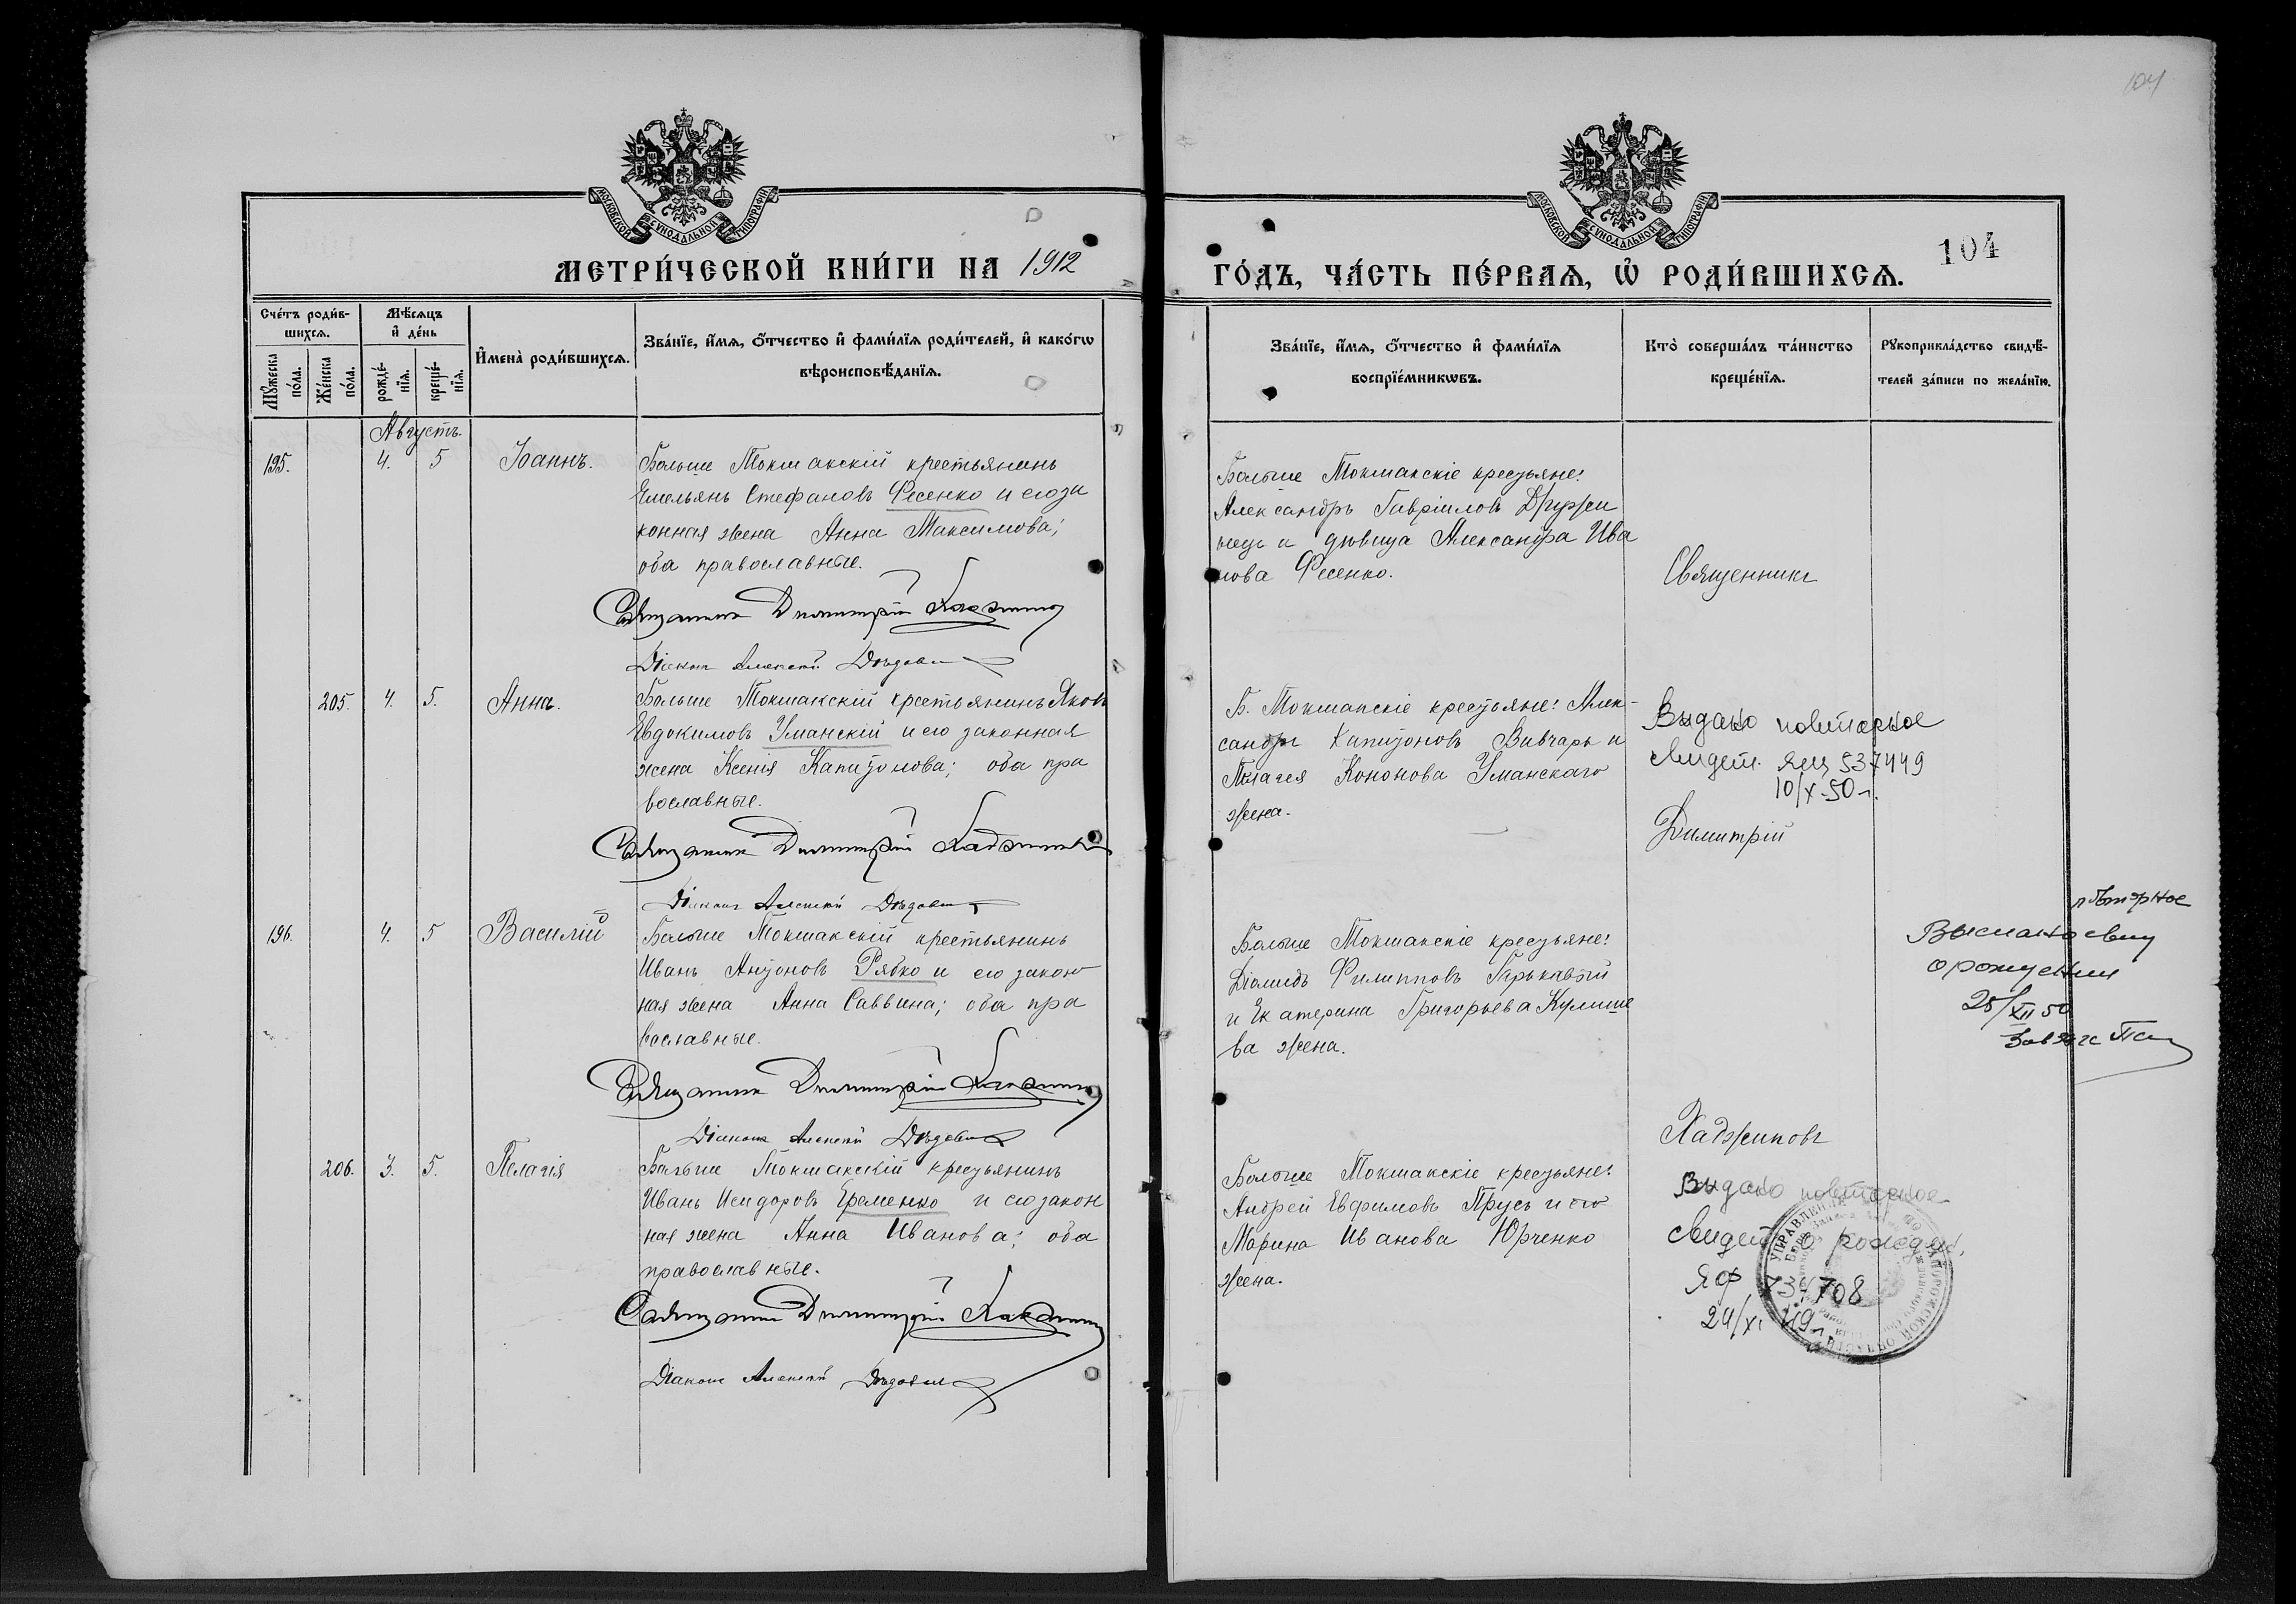 104
МОСКОВСКОЙ СѴНОДАЛЬНОЙ ТИПОГРАФІИ
МОСКОВСКОЙ СѴНОДАЛЬНОЙ ТИПОГРАФІИ
МЕТРИ́ЧЕСКОЙ КНИ́ГИ НА 1912
ГО́ДЪ, ЧА́СТЬ ПЕ́РВАѦ, Ѡ҆ РОДИ́ВШИХСѦ.
104
Сче́тъ роди́в-
шихсѧ.
Мꙋ́жеска
по́ла.
Же́нска
по́ла.
Мѣ́сѧцъ
и҆ де́нь
рожде́-
нїѧ.
креще́-
нїѧ.
И҆мена̀ роди́вшихсѧ.
Зва́нїе, и҆́мѧ, ѻ҆́тчество и҆ фами́лїѧ роди́телей, и҆ како́гѡ
вѣроисповѣ́данїѧ.
Зва́нїе, и҆́мѧ, ѻ҆́тчество и҆ фами́лїѧ
воспрїе́мникѡвъ.
Кто̀ соверша́лъ та́инство
креще́нїѧ.
Рꙋкоприкла́дство свидѣ́-
телей за́писи по жела́нїю.
Августъ.
195.
4.
5
Іоаннъ.
Больше Токмакскій крестьянинъ
Емельянъ Стефановъ Фесенко и его за
конная жена Анна Максимова;
оба православные.
Священникъ Димитрій Хаджиновъ
Діаконъ Алексій
Больше Токмакскіе крестьяне:
Александръ Гавріиловъ Дружи
нецъ и дѣвица Александра Ива
нова Фесенко.
Священникъ
205.
4.
5.
Анна.
Больше Токмакскій крестьянинъ Яковъ
Евдокимовъ Уманскій и его законная
жена Ксенія Капитонова; оба пра
вославные.
Священникъ Димитрій Хаджиновъ
Діаконъ Алексій
Б. Токмакскіе крестьяне: Алек-
сандръ Капитоновъ Вивчарь и
Пелагея Кононова Уманскаго
жена.
Выдано повторное
свидет. ЯЦ 537449
10/X-50 г.
Димитрій
196.
4.
5
Василій
Больше Токмакскій крестьянинъ
Иванъ Антоновъ Рябко и его закон
ная жена Анна Саввина; оба пра
вославные.
Священникъ Димитрій Хаджиновъ
Діаконъ Алексій
Больше Токмакскіе крестьяне:
Діомидъ Филипповъ Гарькавый
и Екатерина Григорьева Кулише
ва жена.
Хаджиновъ
повторное
Выслано свид
о рождении
25/XII 50
206.
3.
5.
Пелагія
Больше Токмакскій крестьянинъ
Иванъ Исидоровъ Еременко и его закон
ная жена Анна Иванова; оба
православные.
Священникъ Димитрій Хаджиновъ
Діаконъ Алексій
Больше Токмакскіе крестьяне:
Андрей Евфимовъ Прусъ и его
Марина Иванова Юрченко
жена.
Выдано повторное
свидет о рожден.
ЯФ 734708
24/XI 49 г.
УПРАВЛЕНИЕ ПО ЗАПОРОЖСКОЙ ОБЛАСТИ